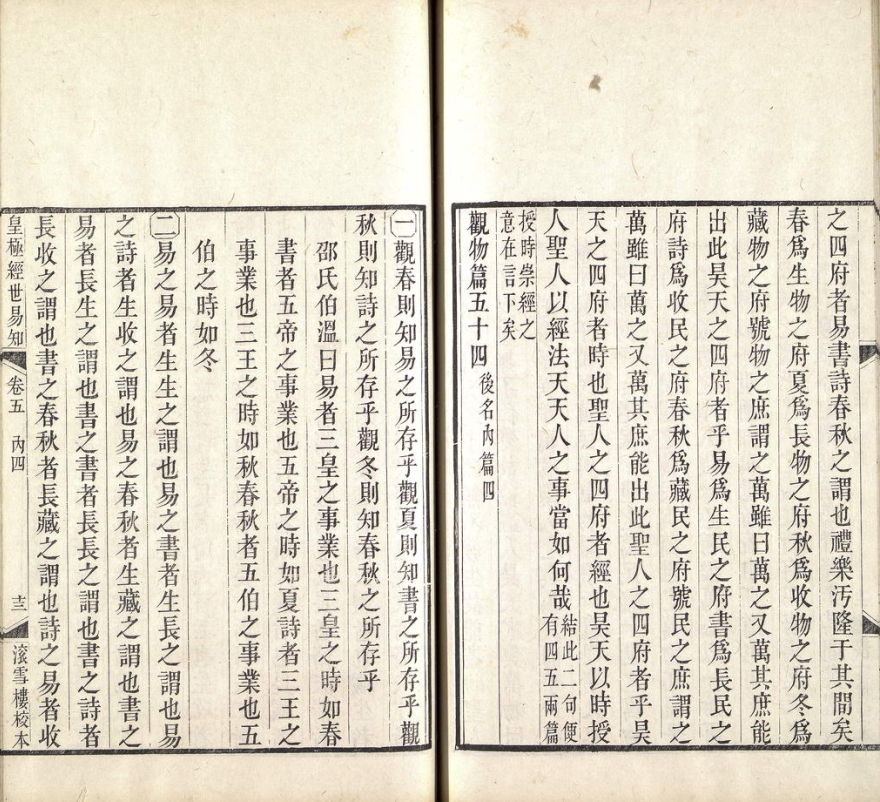 之四府者易書詩春秋之謂也禮樂汚隆于其間矣
春爲生物之府夏爲長物之府秋爲收物之府冬爲
藏物之府號物之庶謂之萬雖曰萬之又萬其庶能
出此昊天之四府者乎易爲生民之府書爲長民之
府詩爲收民之府春秋爲藏民之府號民之庶謂之
萬雖曰萬之又萬其庶能出此聖人之四府者乎昊
天之四府者時也聖人之四府者經也昊天以時授
人聖人以經法天天人之事當如何哉結此二句便有四五兩篇
授時崇經之意在言下矣
觀物篇五十四 後名內篇四
一觀春則知易之所存乎觀夏則知書之所存乎觀
秋則知詩之所存乎觀冬則知春秋之所存乎
邵氏伯溫曰易者三皇之事業也三皇之時如春
書者五帝之事業也五帝之時如夏詩者三王之
事業也三王之時如秋春秋者五伯之事業也五
伯之時如冬
二易之易者生生之謂也易之書者生長之謂也易
之詩者生收之謂也易之春秋者生藏之謂也書之
易者長生之謂也書之書者長長之謂也書之詩者
長收之謂也書之春秋者長藏之謂也詩之易者收
皇極經世易知 卷五 內四 十三 滚雪樓校本